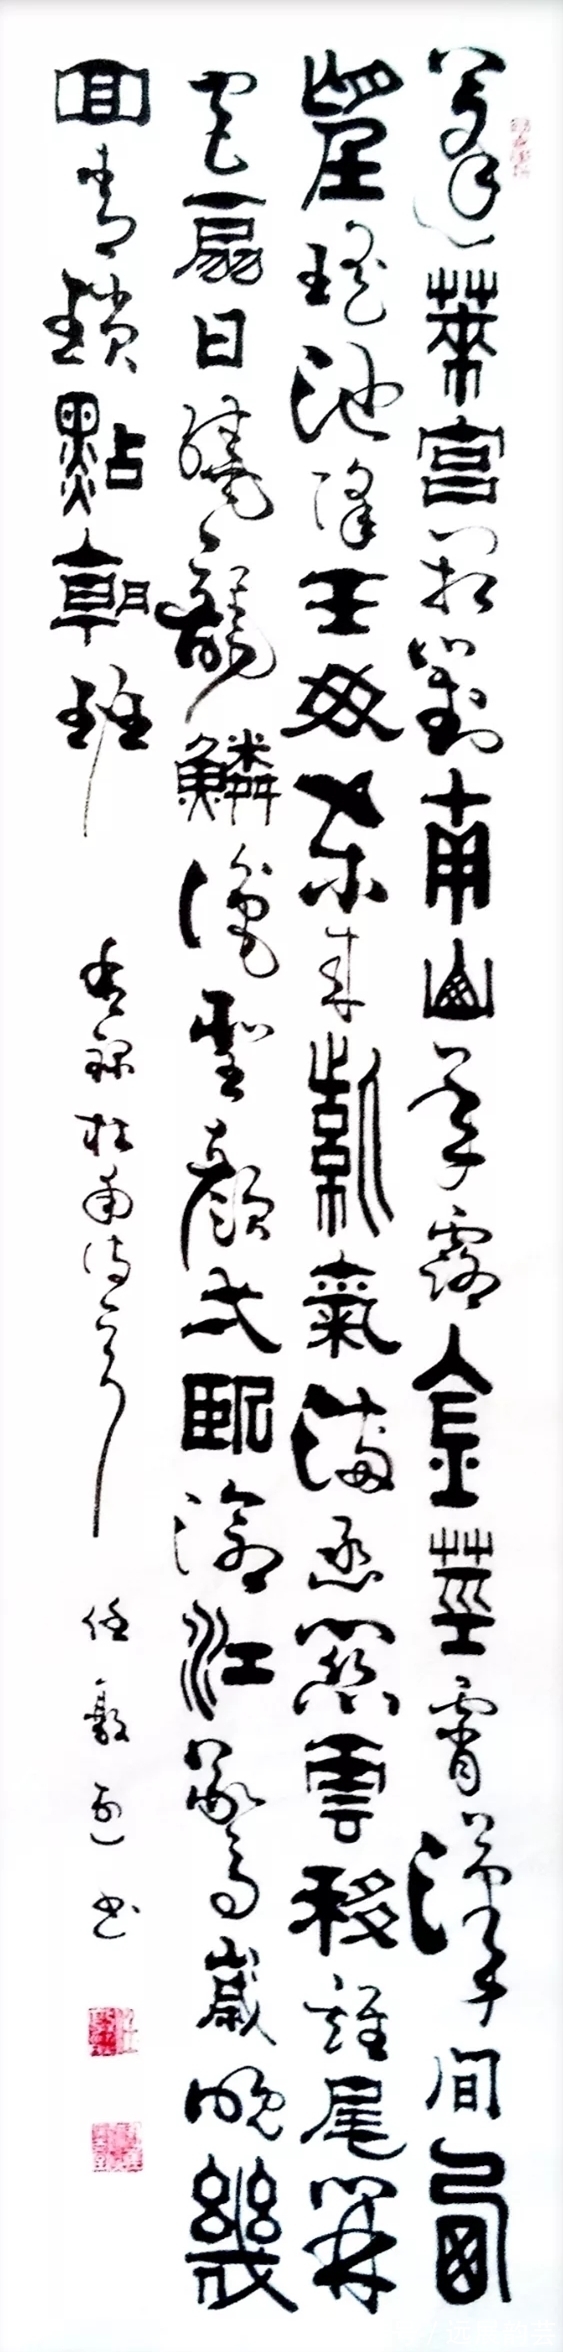 蓬萊宮闕對南山承露金莖霄漢間西
望瑤池降王母東來紫氣滿函關雲移雉尾開
宮扇日繞龍鱗識聖顏弌臥滄江驚歲晚幾
回青鎖點朝班 杜甫詩一首 任 书